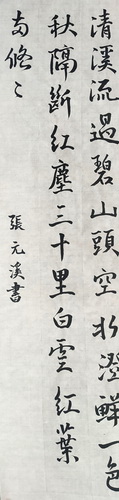 清溪流過碧山頭空水澄鮮一色
秋隔斷紅塵三十里白雲紅葉
兩悠悠
張元溪書